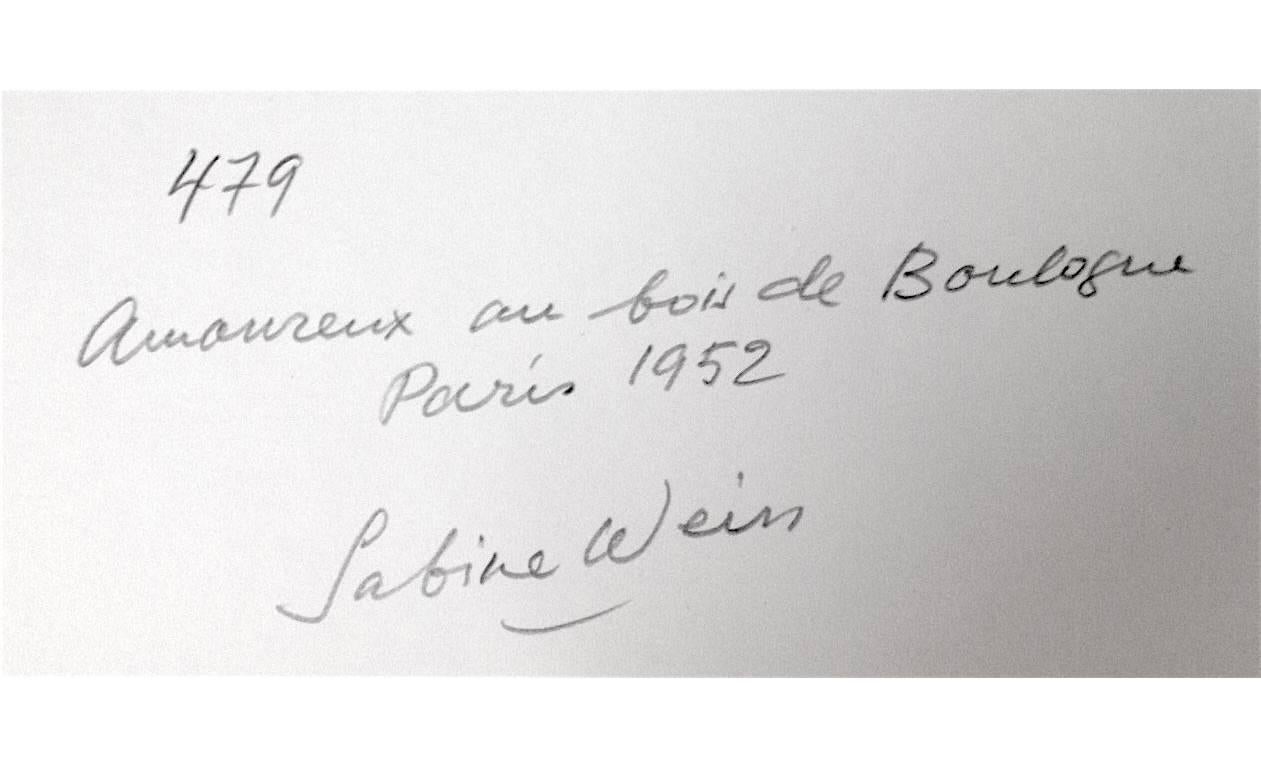 479
Amoureux au bois de Boulogne
Paris 1952
Sabine Weiss